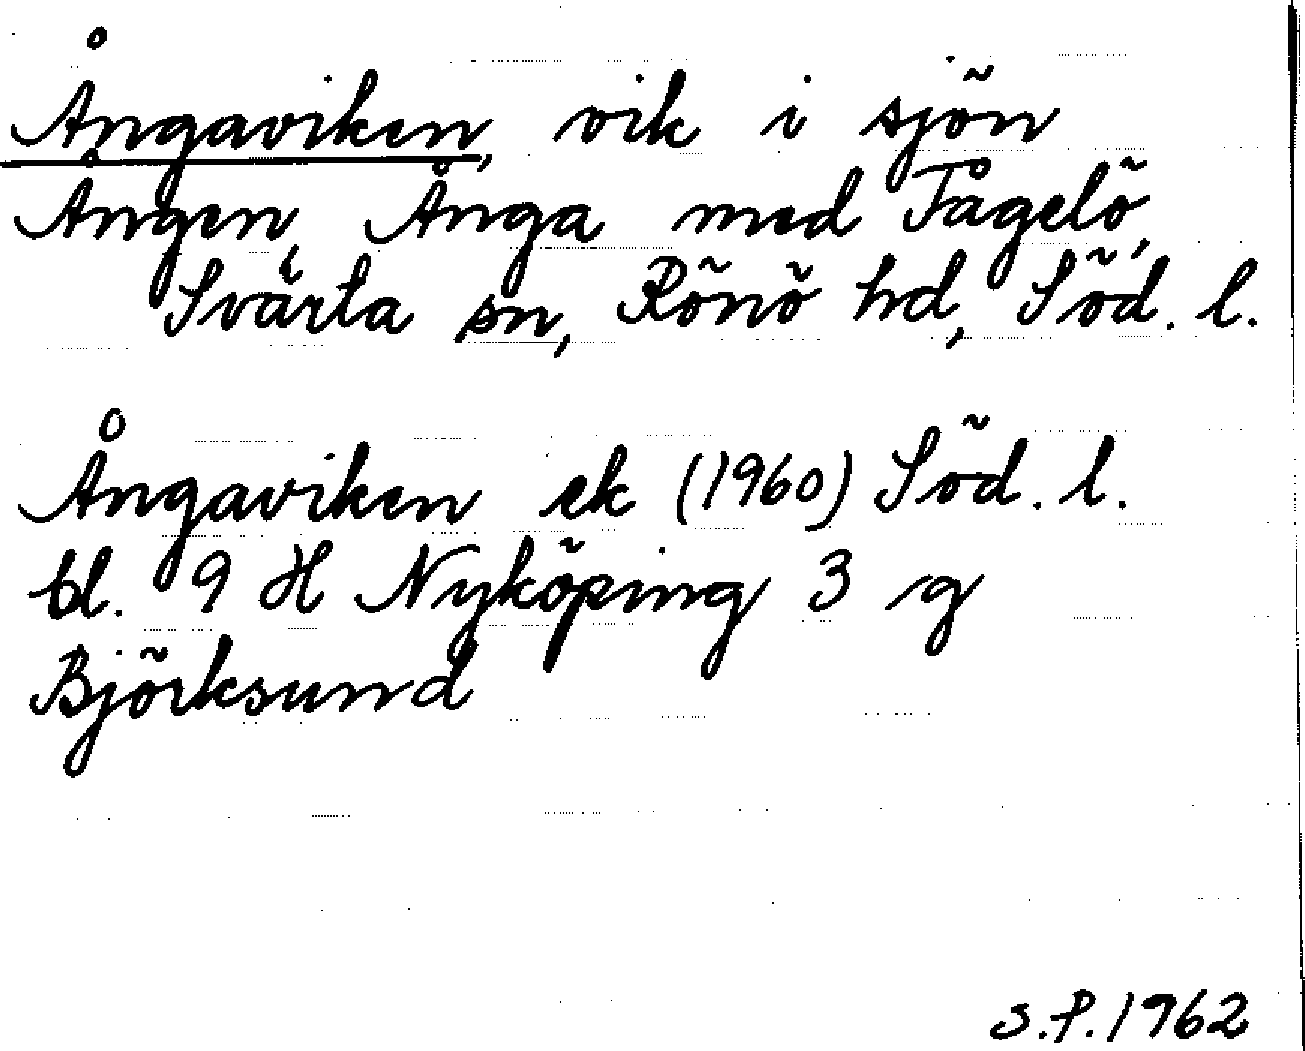 Ångaviken, vik i sjön
Ången, Ånga med Fågelö,
Svärta sn, Rönö hd, Söd. l.
Ångaviken ek (1960) Söd. l.
bl. 9 H Nyköping 3 g
Björksund
S.P. 1962